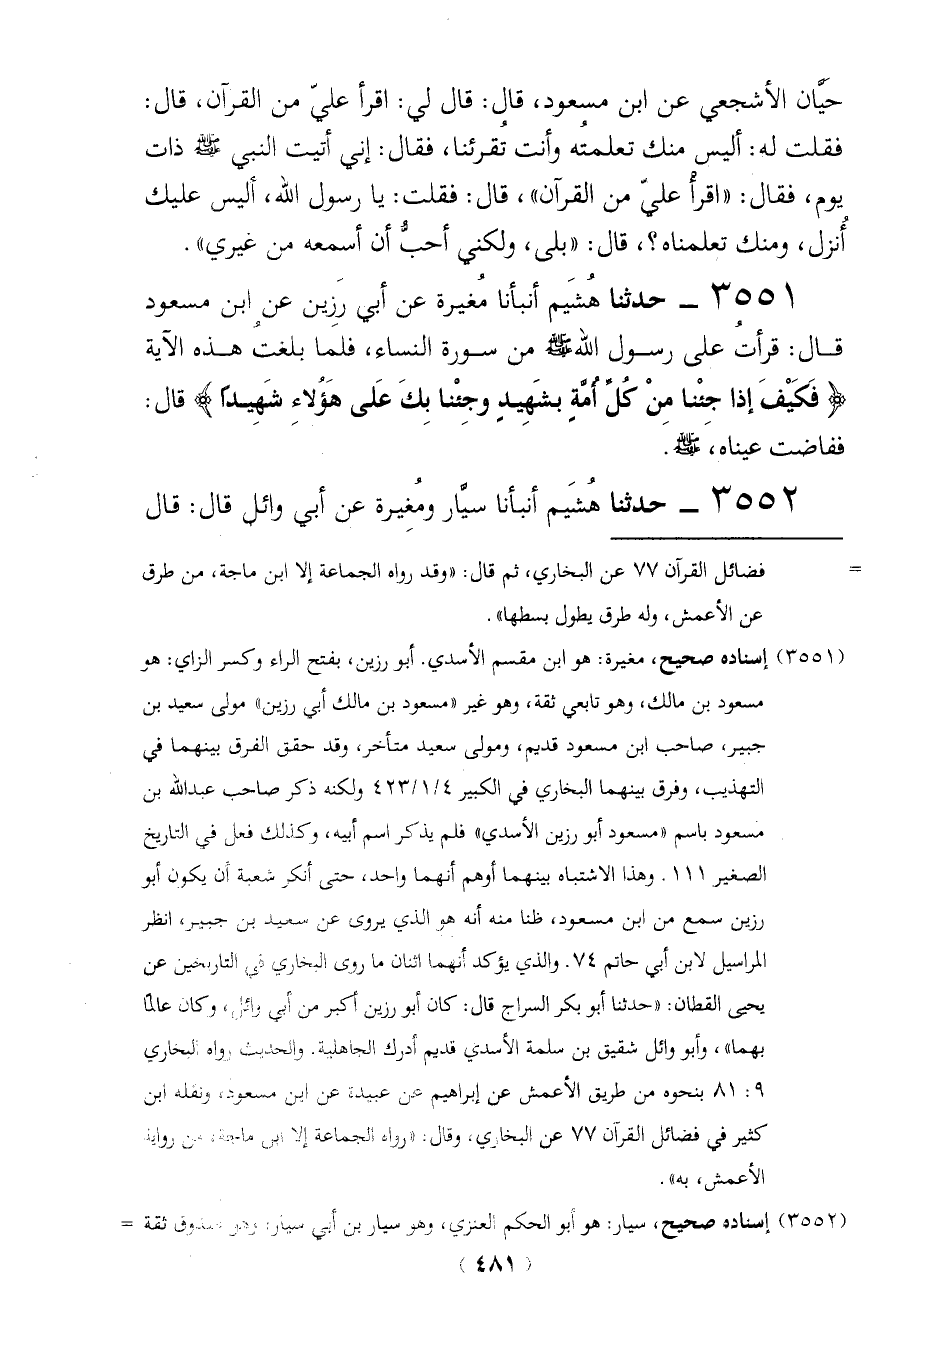 حيَّان الأشجعي عن ابن مسعود، قال: قال لي: اقرأ عليّ من القرآن، قال:
فقلت له: أليس منك تعلمتُه وأنت تُقرئنا، فقال: إني أتيت النبي ﷺ ذات
يوم، فقال: «اقرأْ عليّ من القرآن»، قال: فقلت: يا رسول الله، أليس عليك
أُنزل، ومنك تعلمناه؟، قال: «بلى، ولكني أحبُّ أن أسمعه من غيري».
٣٥٥١ ــ حدثنا هُشَيم أنبأنا مُغيرة عن أبي رَزِين عن ابن مسعود
قــال: قرأتُ على رســول الله ﷺ من ســورة النساء، فلما بلغتُ هــذه الآية
﴿ فَكَيْفَ إذا جئْنا مِنْ كُلِّ أُمَّةٍ بشَهِيدٍ وجئْنا بِكَ عَلى هَؤُلاءِ شَهِيداً ﴾ قال:
ففاضت عيناه، ﷺ.
٣٥٥٢ ــ حدثنا هُشَيم أنبأنا سيَّار ومُغِيرة عن أبي وائل قال: قال
= فضائل القرآن ٧٧ عن البخاري، ثم قال: «وقد رواه الجماعة إلا ابن ماجة، من طرق
عن الأعمش، وله طرق يطول بسطها».
(٣٥٥١) إسناده صحيح، مغيرة: هو ابن مقسم الأسدي. أبو رزين، بفتح الراء وكسر الزاي: هو
مسعود بن مالك، وهو تابعي ثقة، وهو غير «مسعود بن مالك أبي رزين» مولى سعيد بن
جبير، صاحب ابن مسعود قديم، ومولى سعيد متأخر، وقد حقق الفرق بينهما في
التهذيب، وفرق بينهما البخاري في الكبير ٤٢٣/١/٤ ولكنه ذكر صاحب عبدالله بن
مسعود باسم «مسعود أبو رزين الأسدي» فلم يذكر اسم أبيه، وكذلك فعل في التاريخ
الصغير ١١١. وهذا الاشتباه بينهما أوهم أنهما واحد، حتى أنكر شعبة أن يكون أبو
رزين سمع من ابن مسعود، ظنا منه أنه هو الذي يروى عن سعيد بن جبير، انظر
المراسيل لابن أبي حاتم ٧٤. والذي يؤكد أنهما اثنان ما روى البخاري في التاريخين عن
يحيى القطان: «حدثنا أبو بكر السراج قال: كان أبو رزين أكبر من أبي وائل، وكان عالمًا
بهما»، وأبو وائل شقيق بن سلمة الأسدي قديم أدرك الجاهلية. والحديث رواه البخاري
٩: ٨١ بنحوه من طريق الأعمش عن إبراهيم عن عبيدة عن ابن مسعود، ونقله ابن
كثير في فضائل القرآن ٧٧ عن البخاري، وقال: «رواه الجماعة إلا ابن ماجة، من رواية
الأعمش، به».
(٣٥٥٢) إسناده صحيح، سيار: هو أبو الحكم العنزي، وهو سيار بن أبي سيار: وهو صدوق ثقة =
(٤٨١)